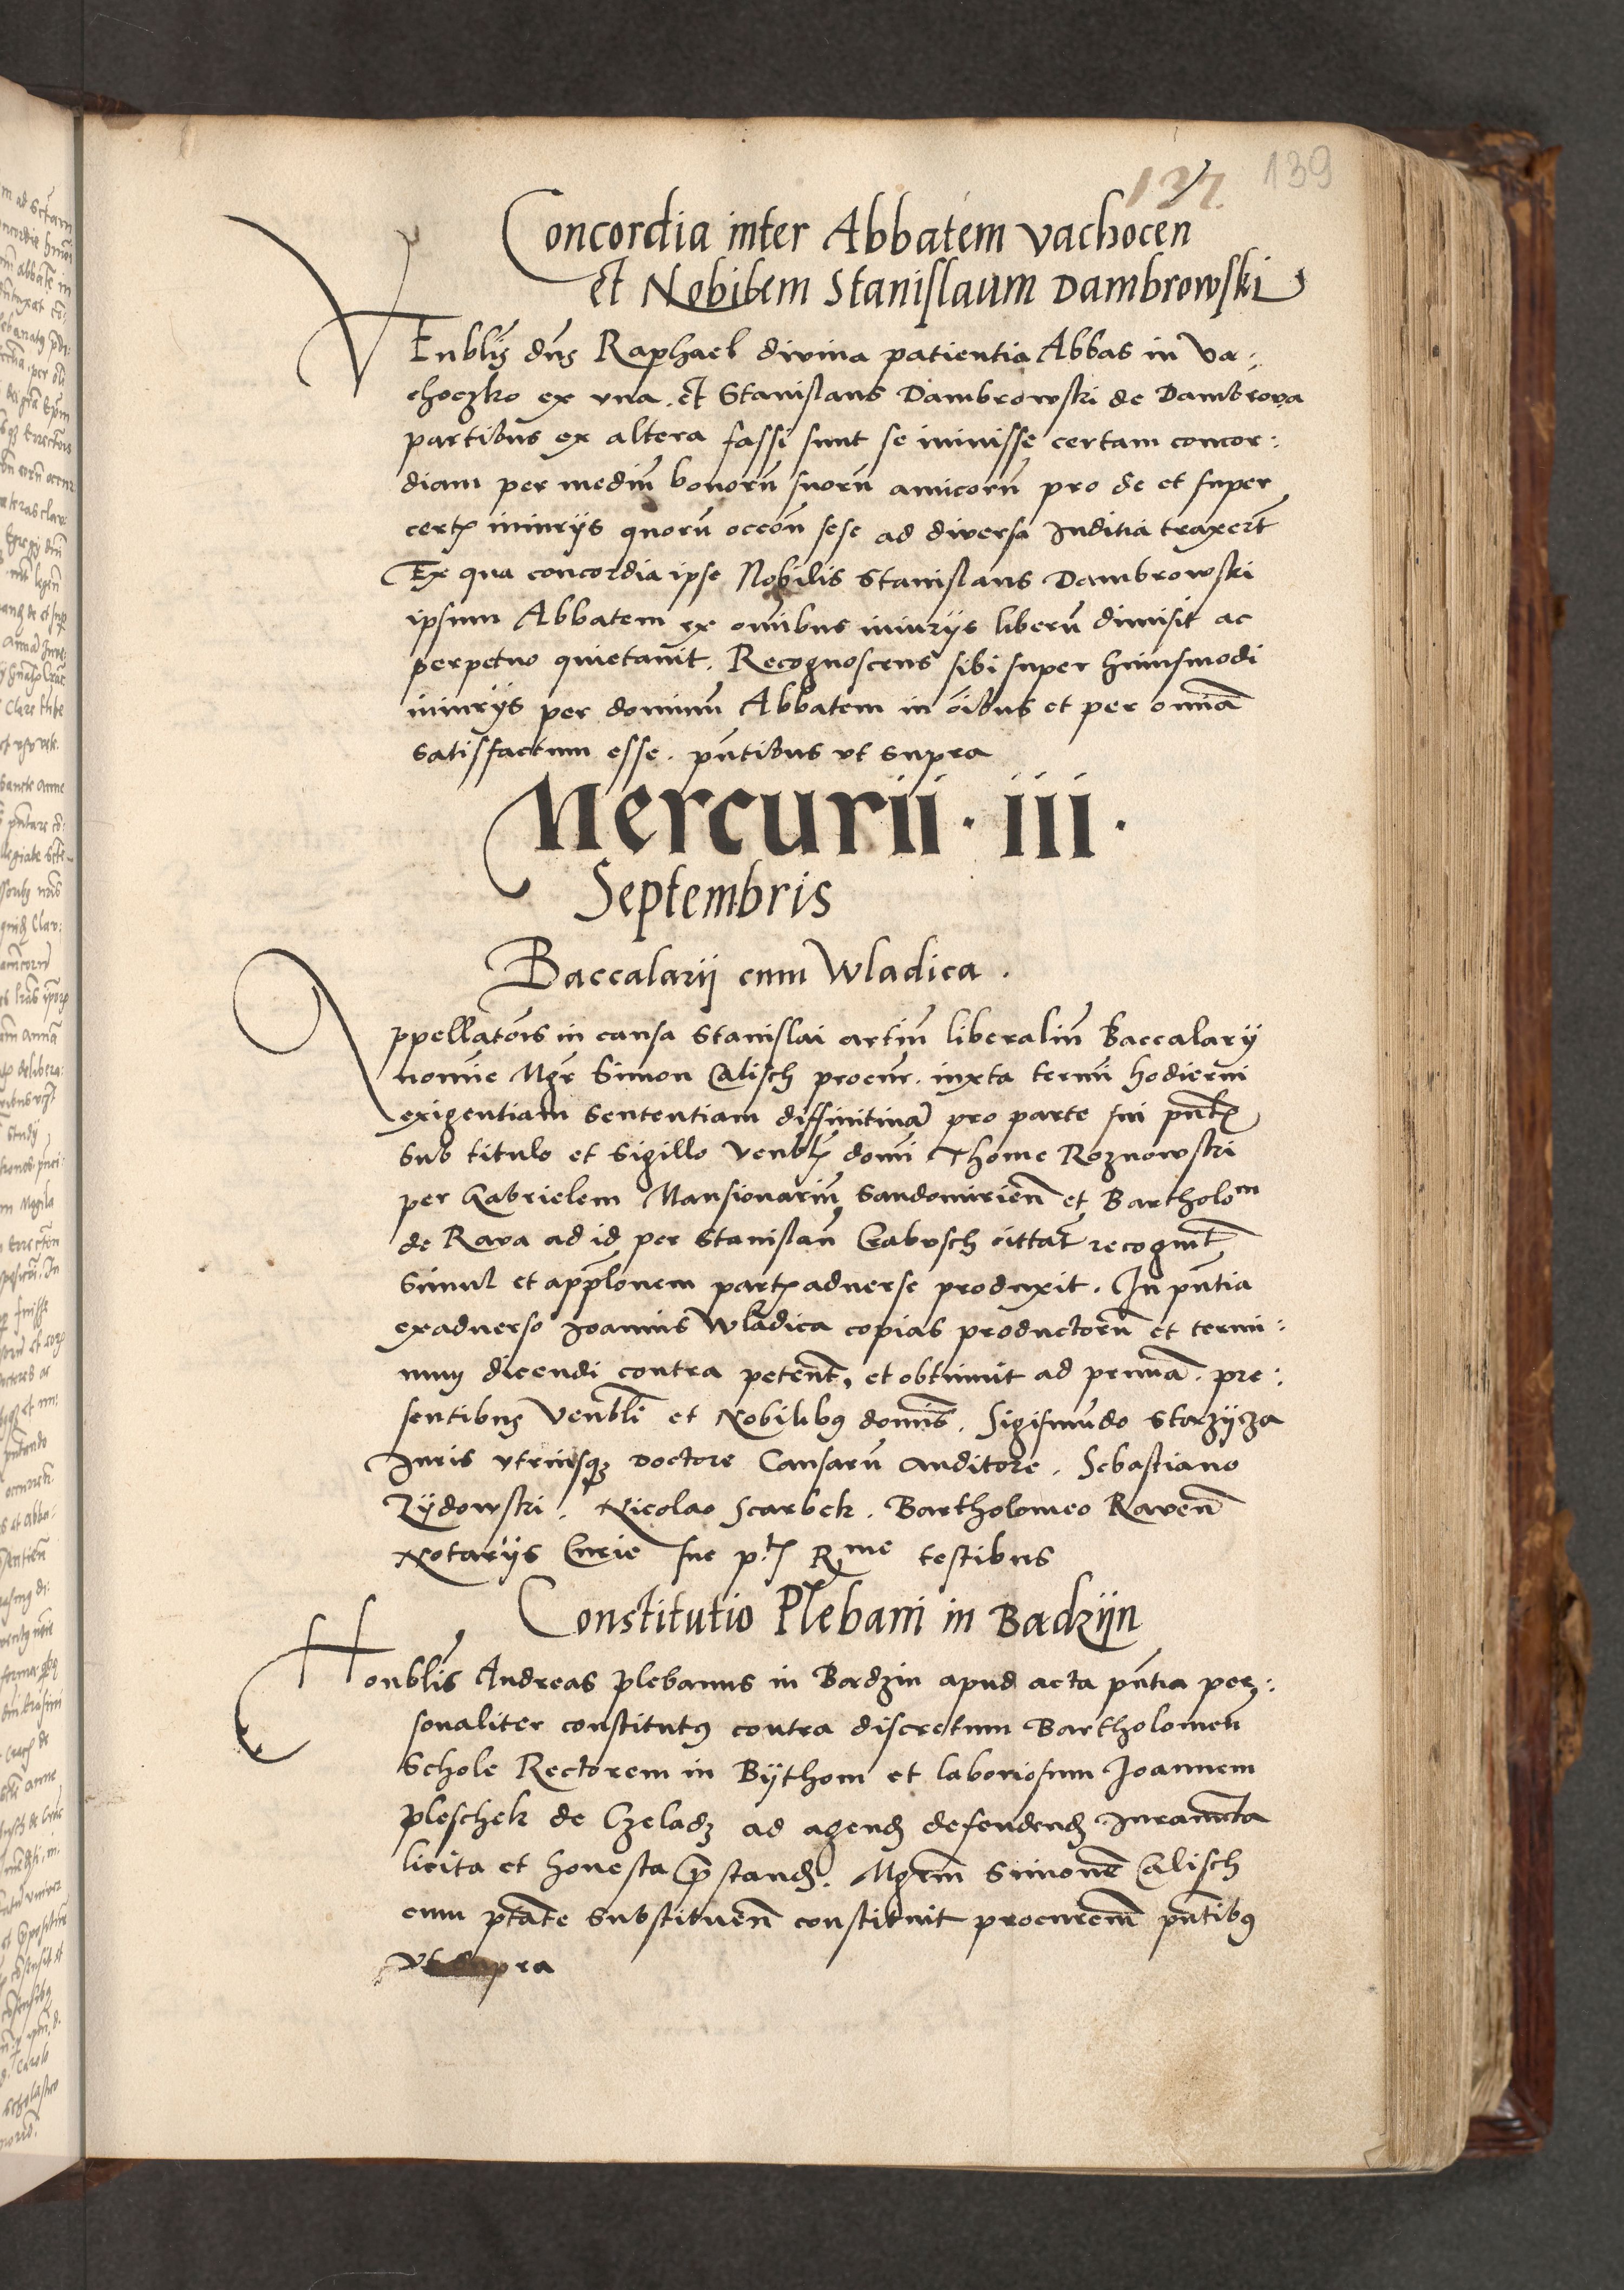 137. 139
Concordia inter Abbatem Vachocen
et Nobilem Stanislaum Dambrowski
VEnblis̄ dn̄s Raphael divina patientia Abbas in Va:
choczko ex vna. et Stanislaus Dambrowski de Dambrova
partibus ex altera fassi sunt se iniuisse certam concor:
diam per mediū bonorū suorū amicorū pro de et super
certꝭ iniurijs quorū occōn sese ad diversa Juditia traxerūt
Ex qua concordia ipse Nobilis Stanislaus Dambrowski
ipsum Abbatem ex om̄ibus iniurijs liberū dimisit ac
perpetuo quietavit. Recognoscens sibi super huiusmodi
iniurijs per dominū Abbatem in ōibus et per omnia
satisfactum esse. pn̄tibus vt supra
Mercurii · iii ·
Septembris
Baccalarij cum Wladica.
Appellatōnis in causa Stanislai artiū liberaliū Baccalarij
nomīe Mgr̄ Simon Calisch procur. iuxta termī hodierni
exigentiam sententiam diffinitivā pro parte sui pn̄tꝭ
sub titulo et sigillo Venblꝭ domī Thome Roznowski
per Gabrielem Mansionariū Sandomirien̄ et Bartholom
de Rava ad id per Stanislaū Grabvsch cittat̄ recognit̄
simul et app̄lonem partꝭ adverse produxit. In pn̄tia
exadverso Joannis Wladica copias productorū et termi:
num dicendi contra petent̄, et obtinuit ad primā. pre:
sentibus Venblī et Nobilibꝰ domīs. Sigismūdo Starzijcza
Juris vtriusqꝫ Doctore Causarū Auditore. Sebastiano
Zijdowski. Nicolao Scarbek. Bartholomeo Raven̄
Notarijs Curie sue p.tꝭ Rme testibus
Constitutio Plebani in Badzijn
Honblis̄ Andreas Plebanus in Badzin apud acta pn̄tia per:
sonaliter constitutꝰ contra discretum Bartholomeū
Schole Rectorem in Bijthom et laboriosum Joannem
Pleschek de Czeladz ad agendꝭ defendendꝭ Juramēta
licita et honesta prestandꝭ. Mgrm̄ Simonē Calisch
cum ptāte substituen̄ constituit procurem̄ pn̄tibꝰ
vt supra